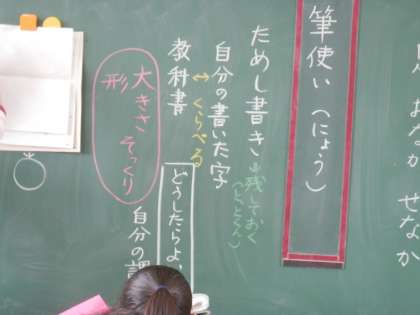 おなか せなか
筆使い(にょう)
ためし書き
残しておく
自分の書いた字
↔くらべる
教科書
どうしたらよ
自分の
大きさ そっくり
形